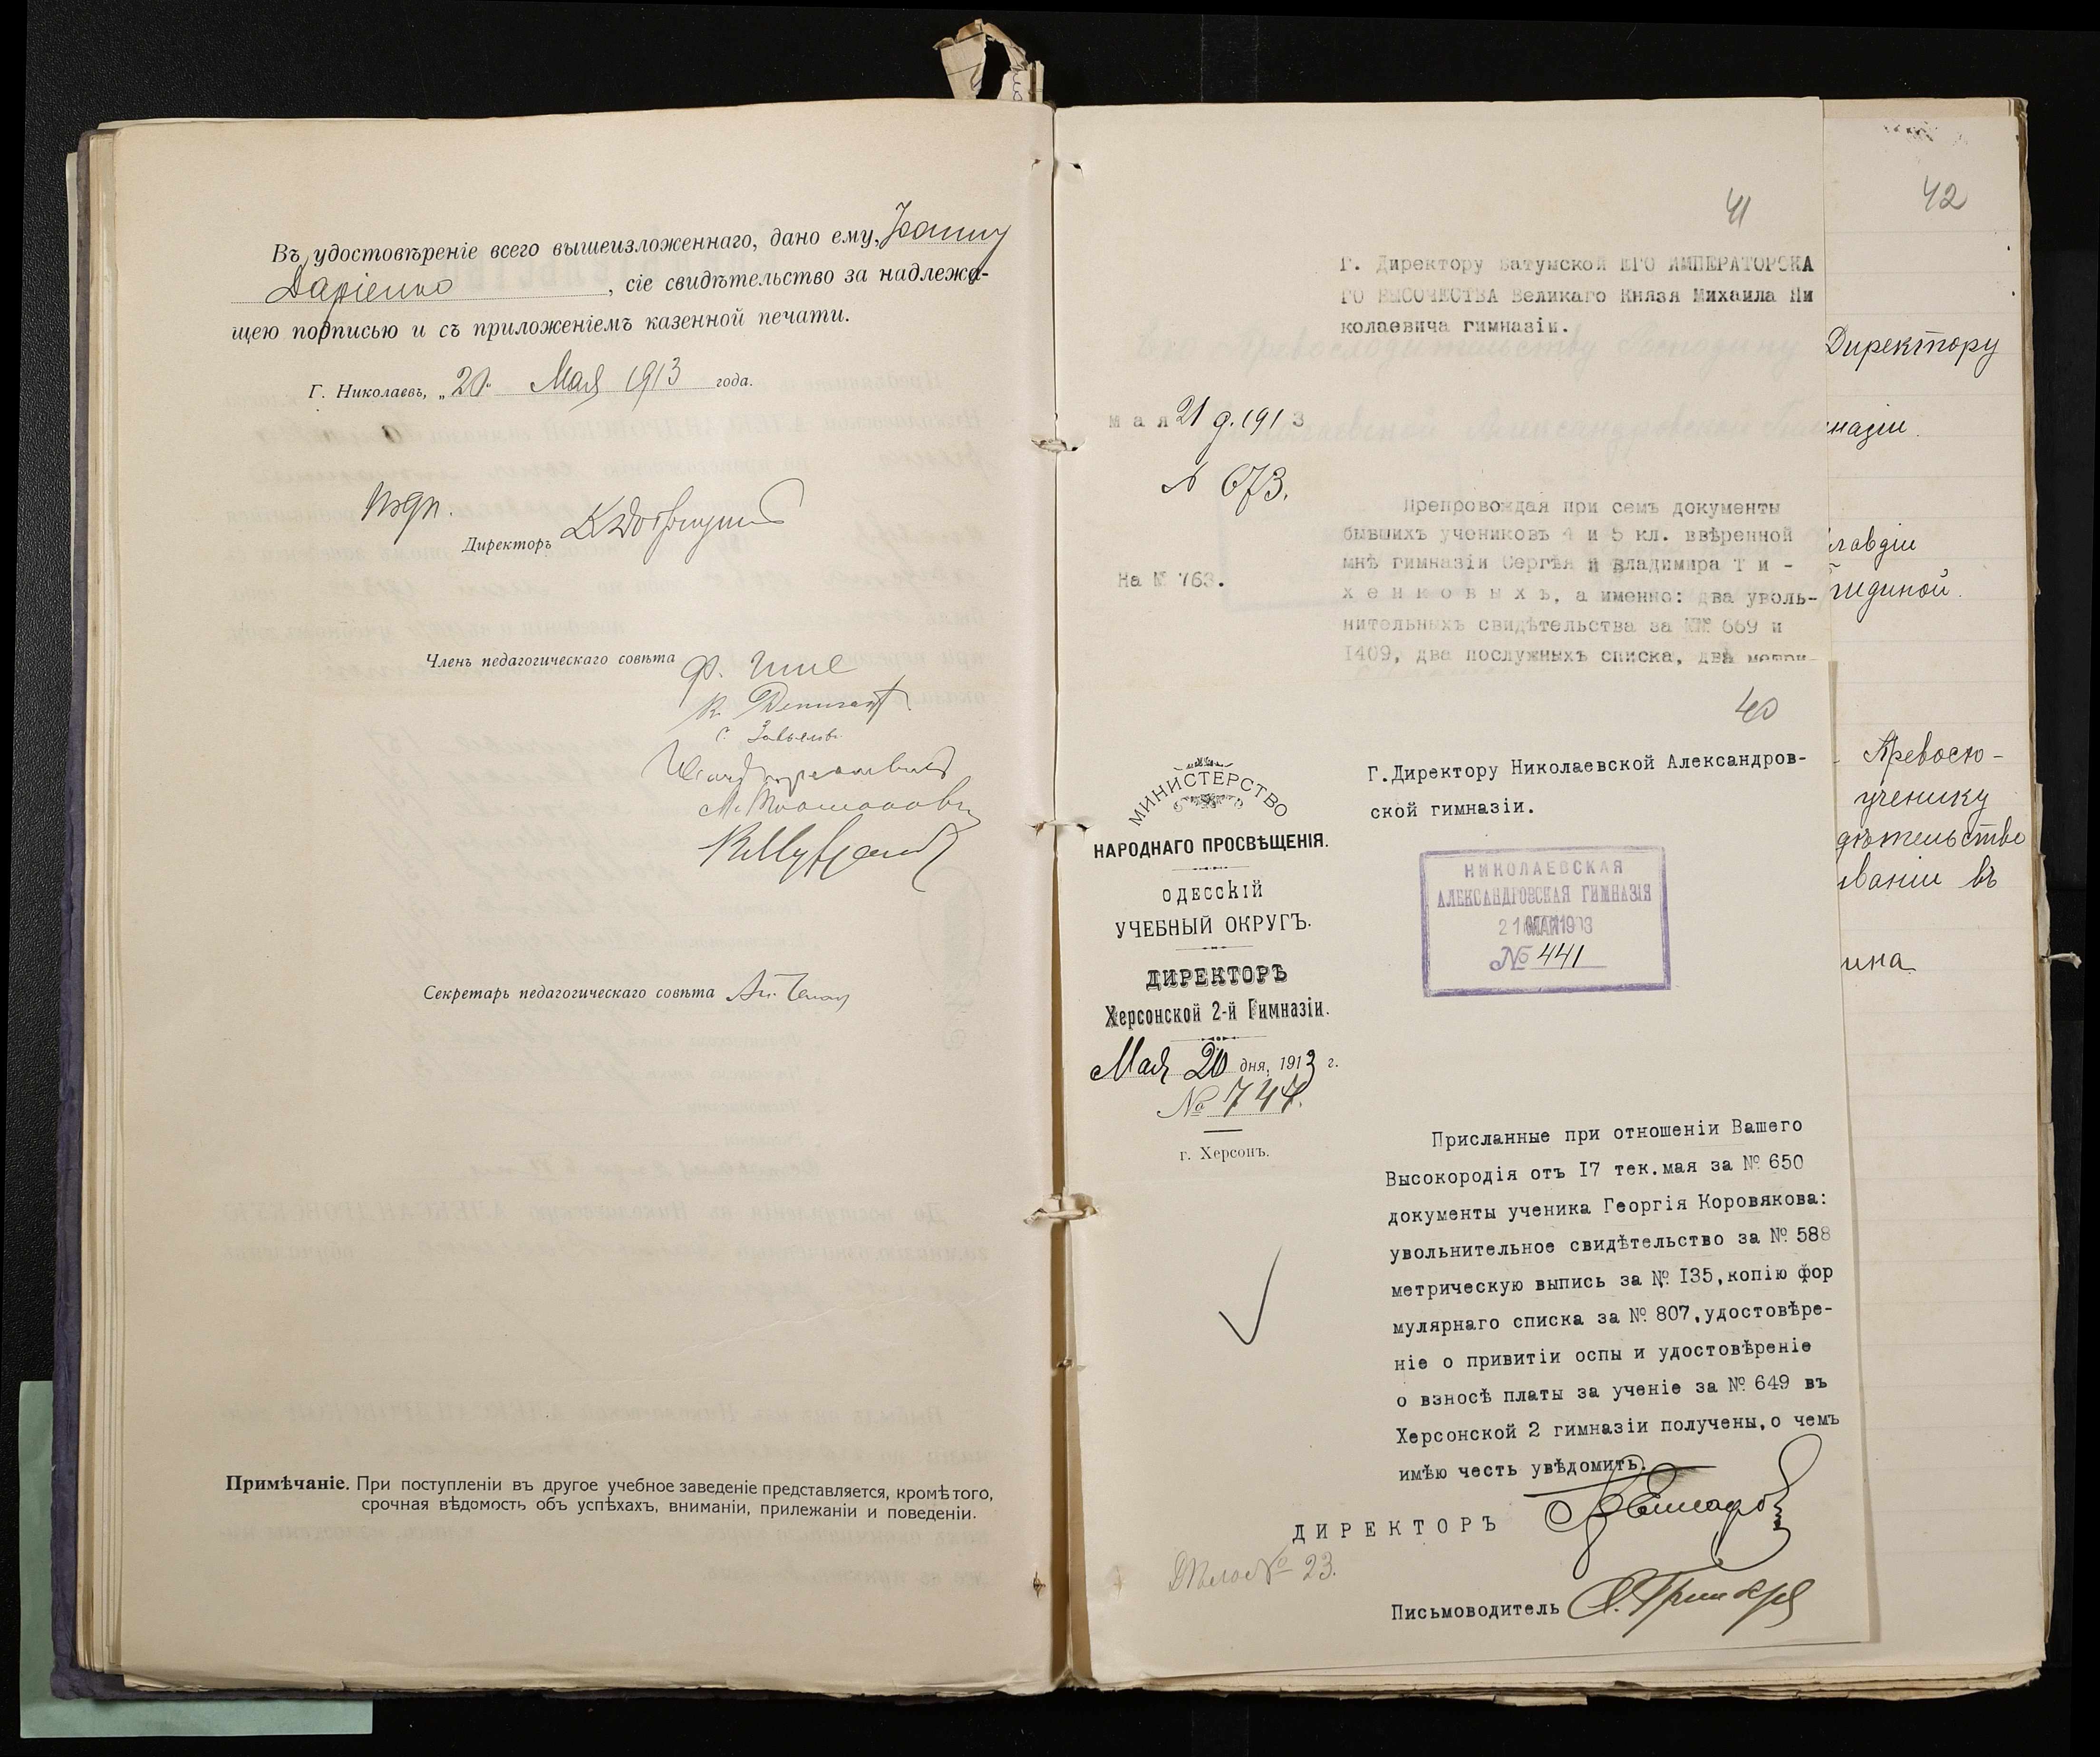 Въ удостовѣреніе всего вышеизложеннаго, дано ему, Іоанну
Даріенко, сіе свидѣтельство за надлежа-
щею подписью и съ приложеніемъ казенной печати.
Г. Николаевъ, „20" Мая 1913 года.
Директоръ
Членъ педагогическаго совѣта
Секретарь педагогическаго совѣта
Примѣчаніе. При поступленіи въ другое учебное заведеніе представляется, кромѣ того,
срочная вѣдомость объ успѣхахъ, вниманіи, прилежаніи и поведеніи.
41
Г. Директору Батумской ЕГО ИМПЕРАТОРСКА
ГО ВЫСОЧЕСТВА Великаго Князя Михаила Ни
колаевича гимназіи.
мая 21 д. 1913
№ 673.
На № 763.
Препровождая при семъ документы
бывшихъ учениковъ 4 и 5 кл. ввѣренной
мнѣ гимназіи Сергѣя и Владимира Т и -
х е н к о в ы х ъ, а именно: два уволь-
нительныхъ свидѣтельства за №№ 669 и
1409, два послужныхъ списка, двѣ метри-
40
МИНИСТЕРСТВО
НАРОДНАГО ПРОСВѢЩЕНІЯ.
ОДЕССКІЙ
УЧЕБНЫЙ ОКРУГЪ.
ДИРЕКТОРЪ
Херсонской 2-й Гимназіи.
Мая 20 дня, 1913 г.
№ 744.
г. Херсонъ.
Г.Директору Николаевской Александров-
ской гимназіи.
НИКОЛАЕВСКАЯ
АЛЕКСАНДРОВСКАЯ ГИМНАЗІЯ
21 МАЯ 1913
№ 441
Присланные при отношеніи Вашего
Высокородія отъ I7 тек.мая за № 650
документы ученика Георгія Коровякова:
увольнительное свидѣтельство за № 588
метрическую выпись за № I35,копію фор
мулярнаго списка за № 807,удостовѣре-
ніе о привитіи оспы и удостовѣреніе
о взносѣ платы за ученіе за № 649 въ
Херсонской 2 гимназіи получены,о чемъ
имѣю честь увѣдомить.
ДИРЕКТОРЪ
Дѣло № 23.
Письмоводитель
42
Директору
назіи.
Превосхо-
ученику
дѣтельство
ваніи въ
ина